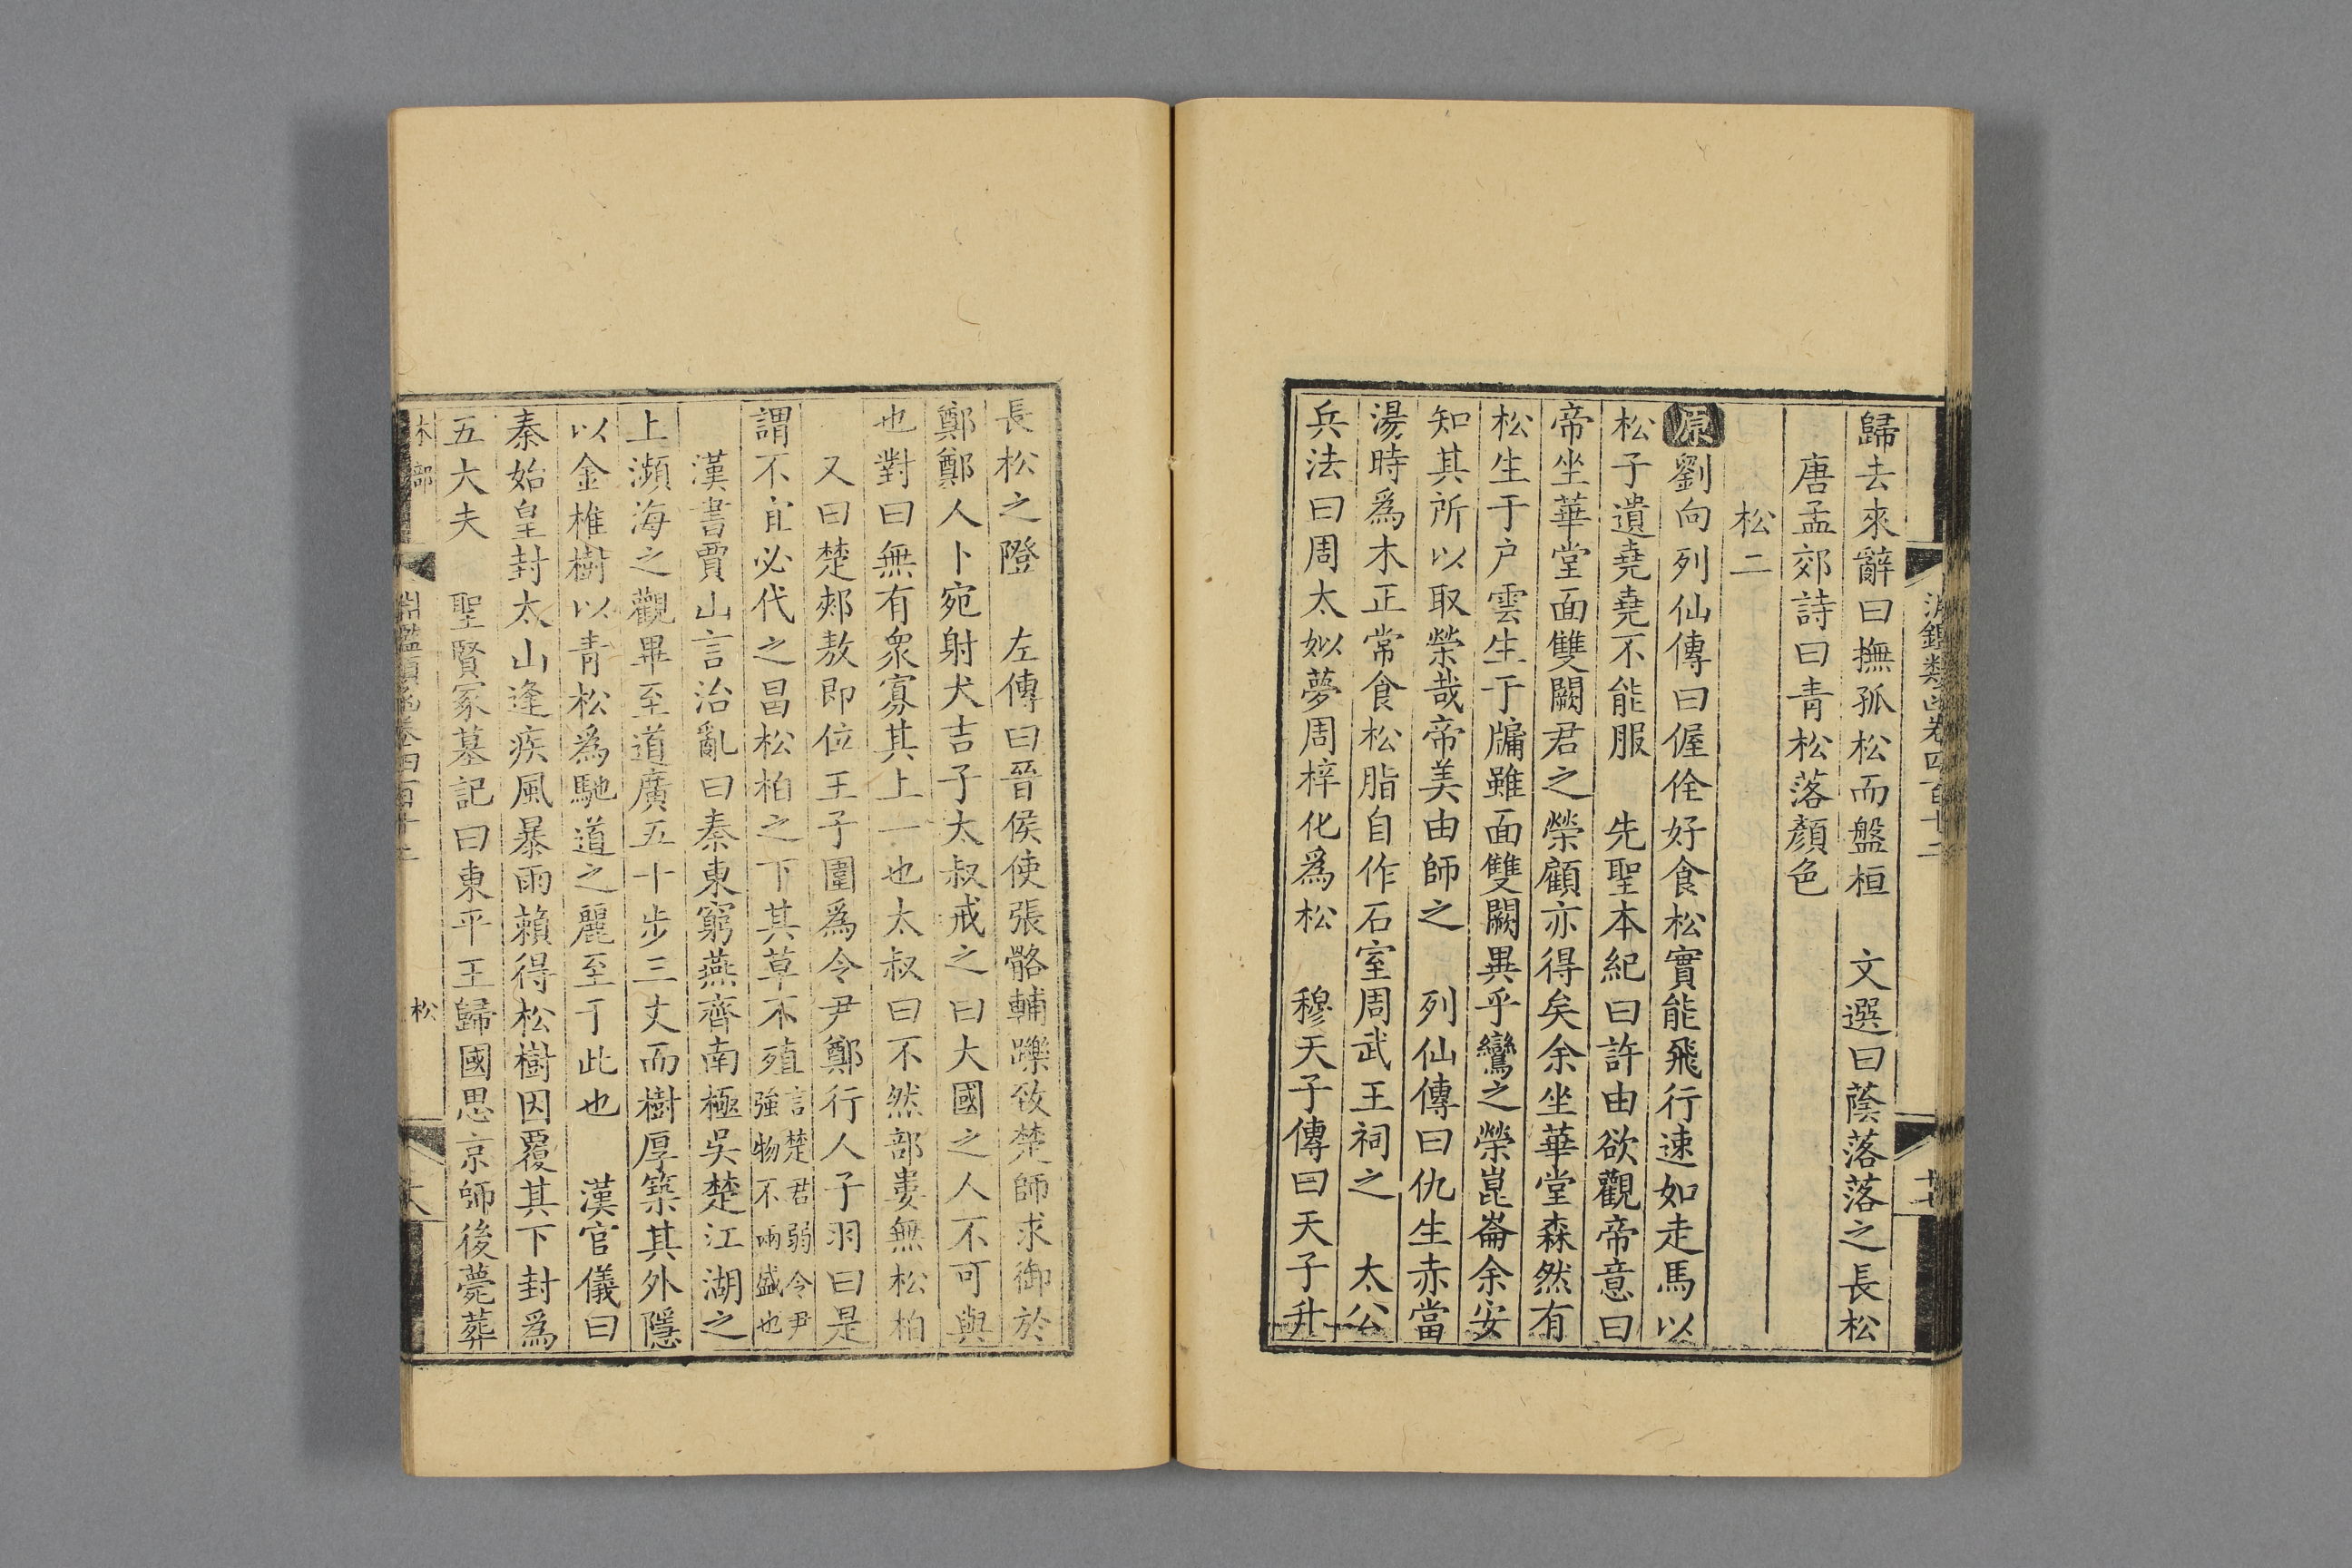 淵鑑類函卷四百十二
歸去來辭曰撫孤松而盤桓　文選曰蔭落落之長松
唐孟郊詩曰青松落顏色
松二
原劉向列仙傳曰偓佺好食松實能飛行速如走馬以
松子遺堯堯不能服　先聖本紀曰許由欲觀帝意曰
帝坐華堂面雙闕君之榮顧亦得矣余坐華堂森然有
松生于戶雲生于牖雖面雙闕異乎鸞之榮崑崙余安
知其所以取榮哉帝美由師之　列仙傳曰仇生赤當
湯時爲木正常食松脂自作石室周武王祠之　太公
兵法曰周太姒夢周梓化爲松　穆天子傳曰天子升
長松之隥　左傳曰晉侯使張骼輔躒致楚師求御於
鄭鄭人卜宛射犬吉子太叔戒之曰大國之人不可與
也對曰無有衆寡其上一也太叔曰不然部婁無松柏
又曰楚郟敖即位王子圍爲令尹鄭行人子羽曰是
謂不宜必代之昌松柏之下其草不殖言楚君弱令尹強物不兩盛也
漢書賈山言治亂曰秦東窮燕齊南極吳楚江湖之
上瀕海之觀畢至道廣五十步三丈而樹厚築其外隱
以金椎樹以青松爲馳道之麗至于此也　漢官儀曰
秦始皇封太山逢疾風暴雨賴得松樹因覆其下封爲
五大夫　聖賢冢墓記曰東平王歸國思京師後薨葬
木部　淵鑑類函卷四百十二　松